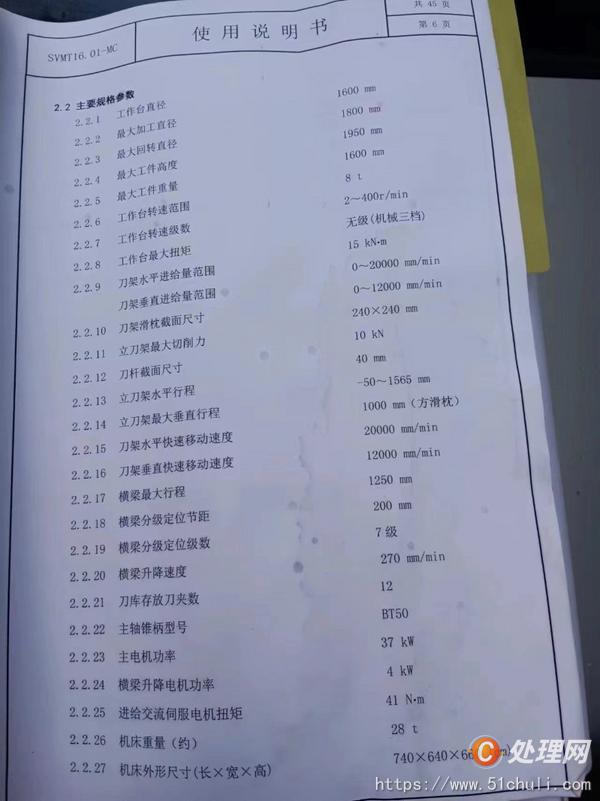 SVMT16.01-MC
使用说明书
共 45 页
第 6 页
2.2 主要规格参数
2.2.1 工作台直径 1600 mm
2.2.2 最大加工直径 1800 mm
2.2.3 最大回转直径 1950 mm
2.2.4 最大工件高度 1600 mm
2.2.5 最大工件重量 8 t
2.2.6 工作台转速范围 2～400r/min
2.2.7 工作台转速级数 无级(机械三档)
2.2.8 工作台最大扭矩 15 kN·m
2.2.9 刀架水平进给量范围 0～20000 mm/min
刀架垂直进给量范围 0～12000 mm/min
2.2.10 刀架滑枕截面尺寸 240×240 mm
2.2.11 立刀架最大切削力 10 kN
2.2.12 刀杆截面尺寸 40 mm
2.2.13 立刀架水平行程 -50～1565 mm
2.2.14 立刀架最大垂直行程 1000 mm（方滑枕）
2.2.15 刀架水平快速移动速度 20000 mm/min
2.2.16 刀架垂直快速移动速度 12000 mm/min
2.2.17 横梁最大行程 1250 mm
2.2.18 横梁分级定位节距 200 mm
2.2.19 横梁分级定位级数 7级
2.2.20 横梁升降速度 270 mm/min
2.2.21 刀库存放刀夹数 12
2.2.22 主轴锥柄型号 BT50
2.2.23 主电机功率 37 kW
2.2.24 横梁升降电机功率 4 kW
2.2.25 进给交流伺服电机扭矩 41 N·m
2.2.26 机床重量（约） 28 t
2.2.27 机床外形尺寸(长×宽×高) 740×640×66
C 处理网
https://www.51chuli.com